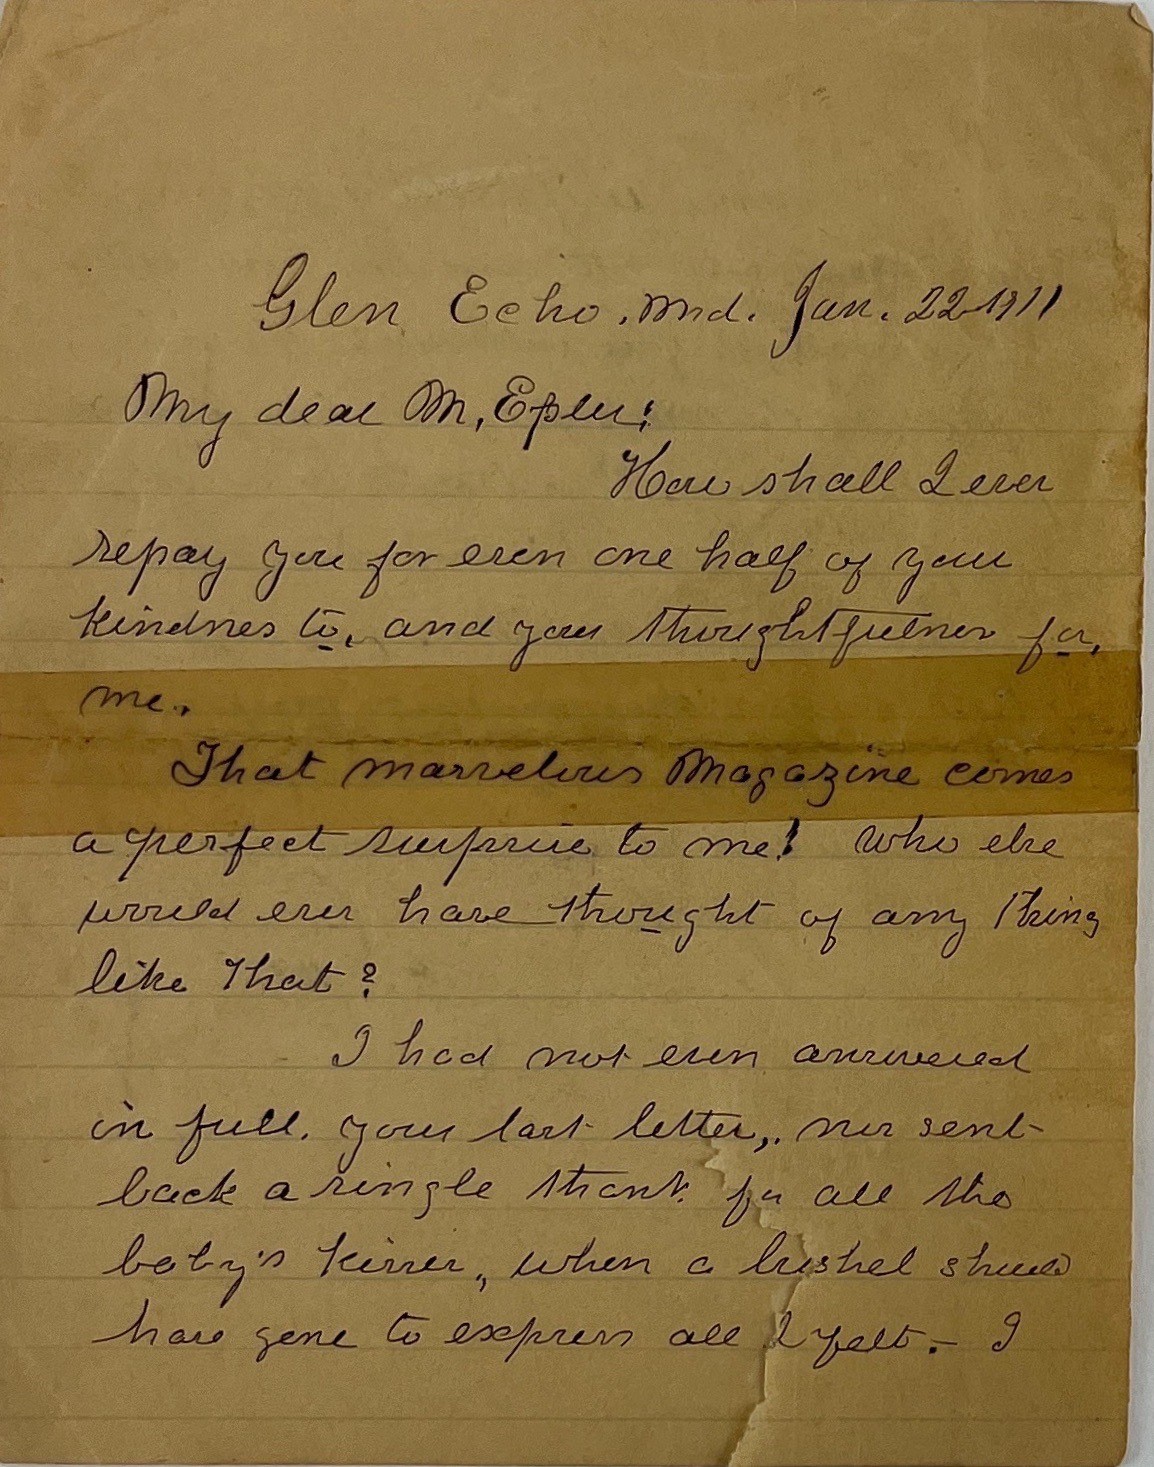 Glen Echo, Md. Jan. 22-1911
My dear M, Epler:
How shall I ever
repay you for even one half of your
kindness to, and your thoughtfulness for,
me.
That marvelous Magazine comes
a perfect surprise to me! Who else
would ever have thought of any thing
like that?
I had not even answered
in full. your last letter,. nor sent
back a single thank. for all the
baby's kisses,, when a bushel should
have gone to express all I felt.- I